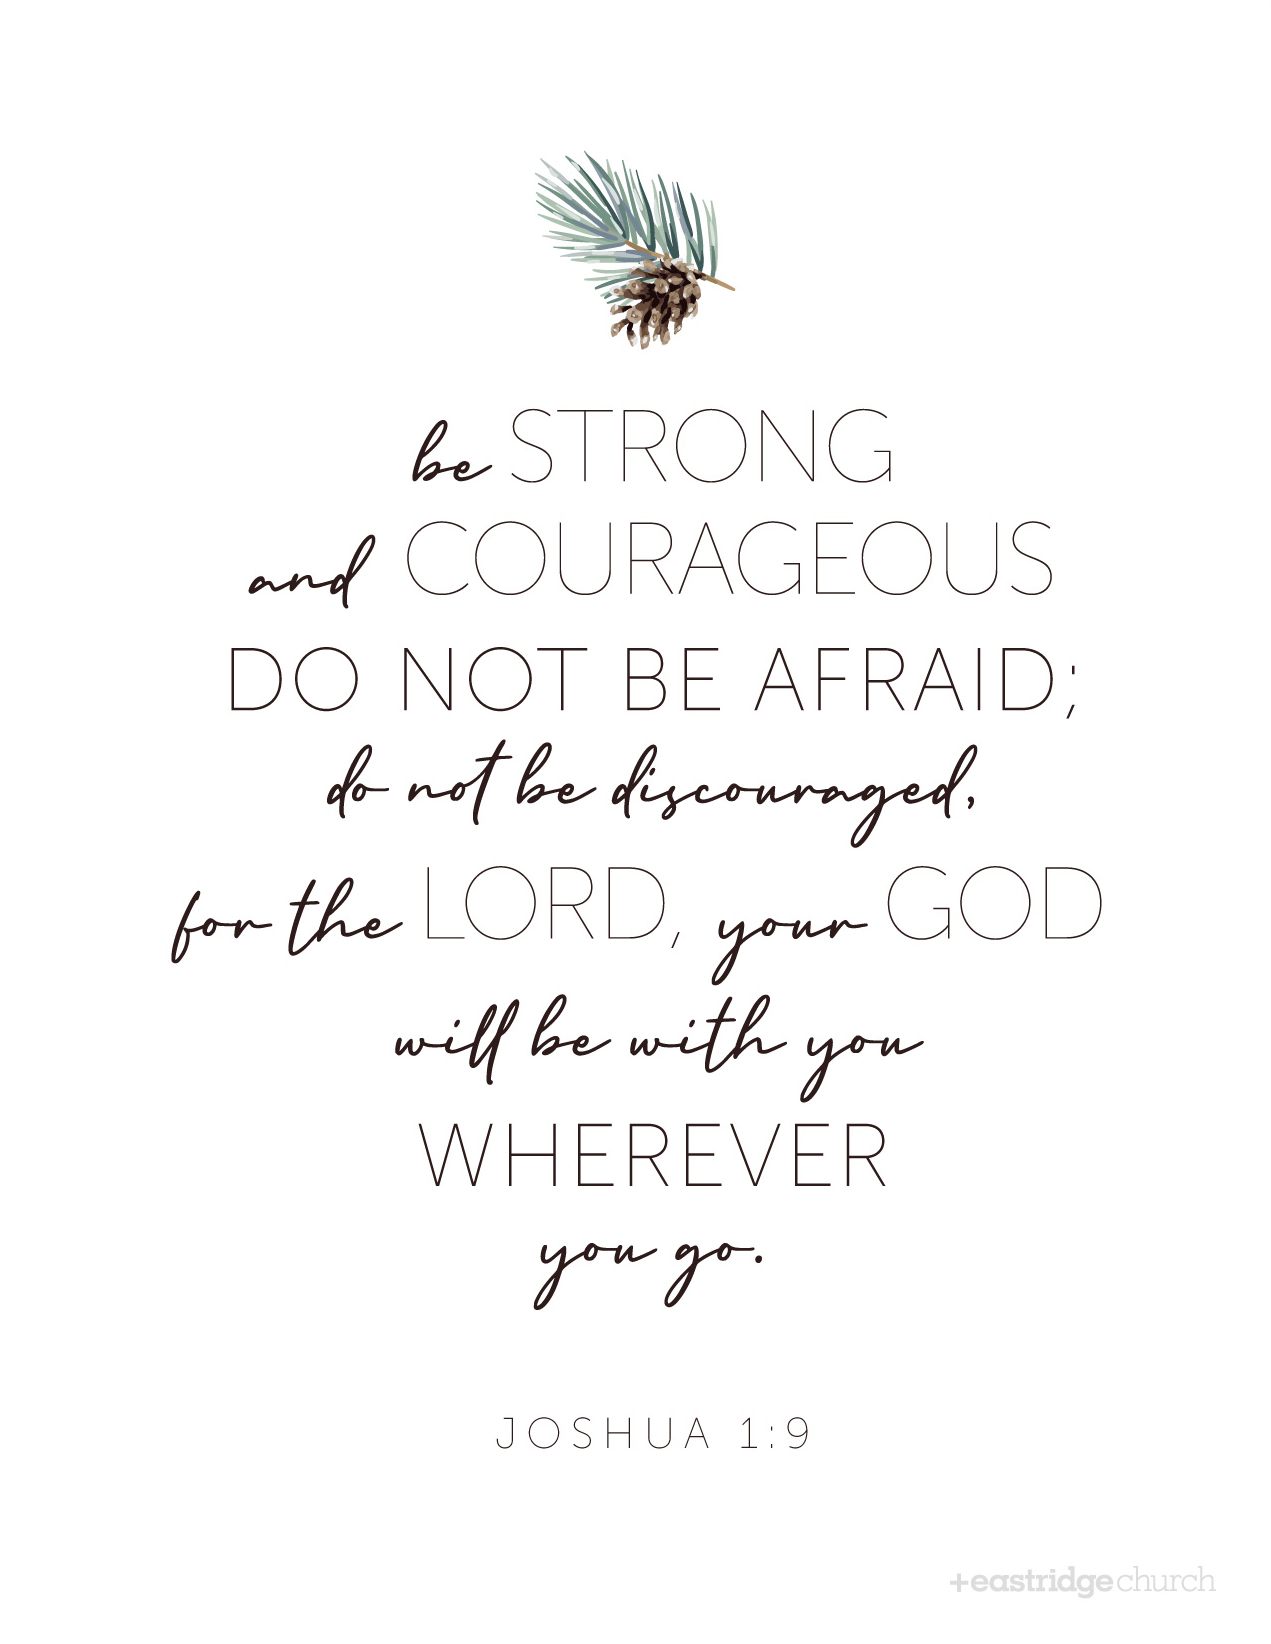 be STRONG
and COURAGEOUS
DO NOT BE AFRAID;
do not be discouraged,
for the LORD, your GOD
will be with you
WHEREVER
you go.
JOSHUA 1:9
+eastridgechurch